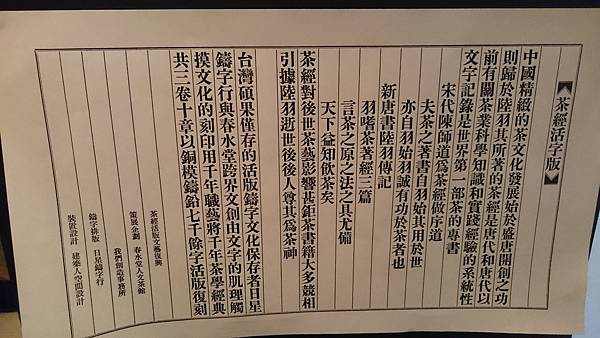 茶經活字版
中國精緻的茶文化發展始於盛唐開創之功
則歸於陸羽其所著的茶經是唐代和唐代以
前有關茶業科學知識和實踐經驗的系統性
文字記錄是世界第一部茶的專書
宋代陳師道為茶經做序道
夫茶之著書自羽始其用於世
亦自羽始羽誠有功於茶者也
新唐書陸羽傳記
羽嗜茶著經三篇
言茶之原之法之具尤備
天下益知飲茶矣
茶經對後世茶藝影響甚鉅茶書籍大多競相
引據陸羽逝世後後人尊其為茶神
台灣碩果僅存的活版鑄字文化保存者日星
鑄字行與春水堂跨界文創由文字的肌理觸
摸文化的刻印用千年職藝將千年茶學經典
共三卷十章以銅模鑄鉛七千餘字活版復刻
茶經活版文藝復興
我們創造事務所
策展企劃 春水堂人文茶館
鑄字排版 日星鑄字行
裝置設計 建築人空間設計